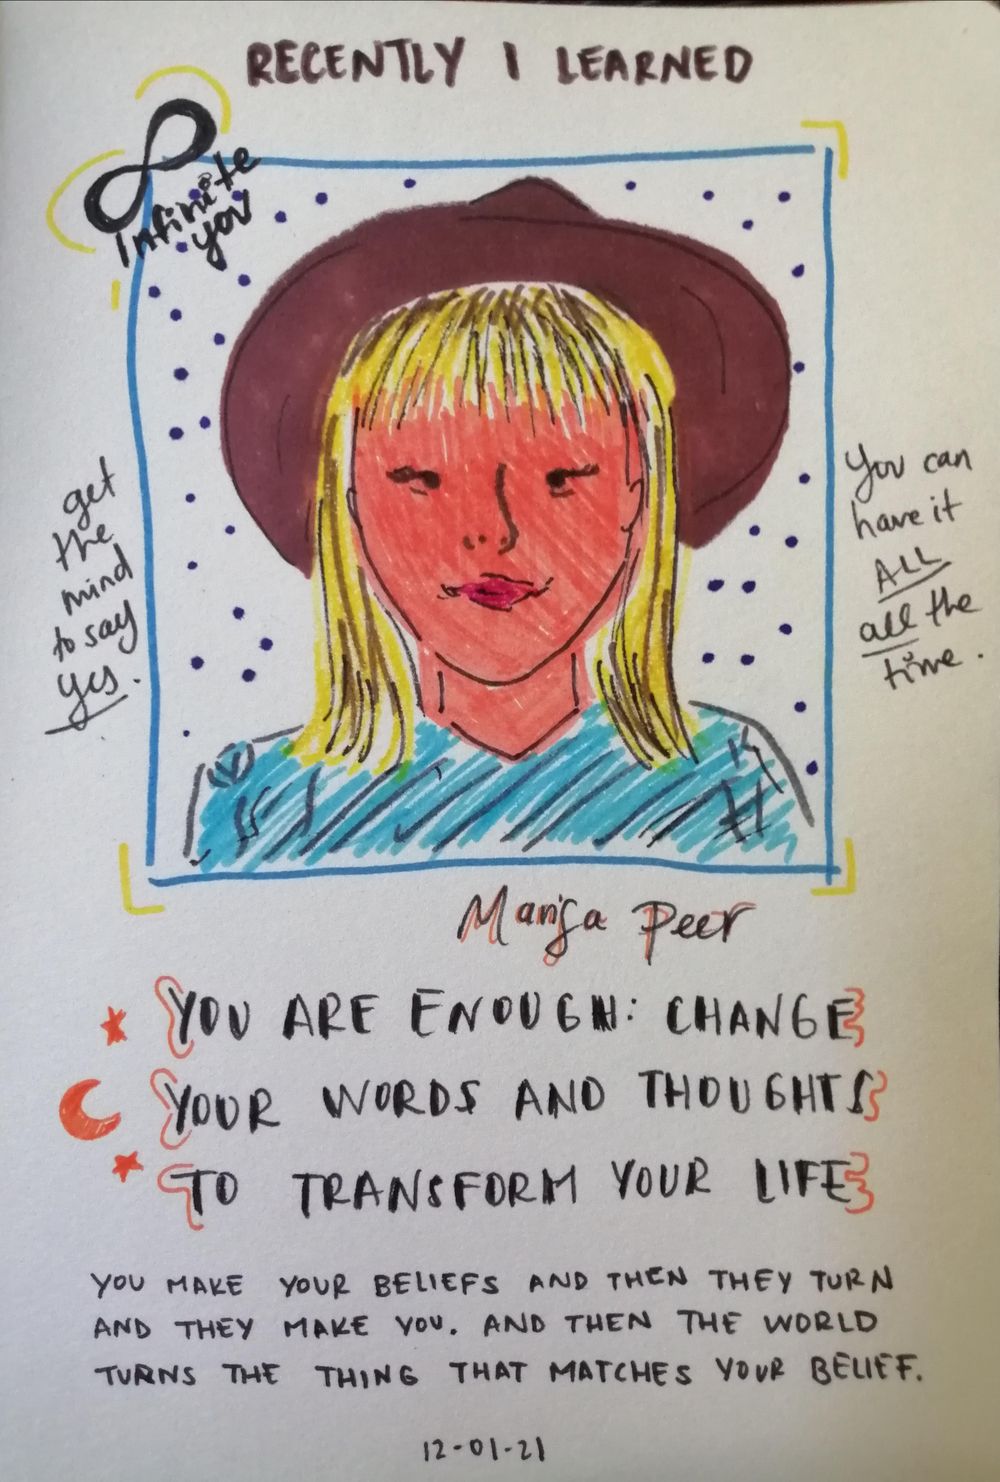 RECENTLY I LEARNED
Infinite
you
get
the
mind
to say
yes.
You can
have it
ALL
all the
time.
Marisa Peer
YOU ARE ENOUGH: CHANGE
YOUR WORDS AND THOUGHTS
TO TRANSFORM YOUR LIFE
YOU MAKE YOUR BELIEFS AND THEN THEY TURN
AND THEY MAKE YOU. AND THEN THE WORLD
TURNS THE THING THAT MATCHES YOUR BELIEF.
12-01-21